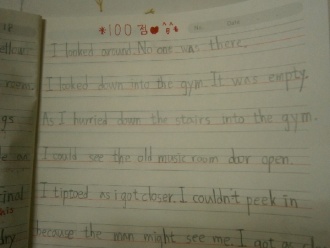 *100점
No. Date
I looked around. No one was there.
I looked down into the gym. It was empty.
As I hurried down the stairs into the gym.
I could see the old music room door open.
I tiptoed as i got closer. I couldn't peek in
because the man might see me I got